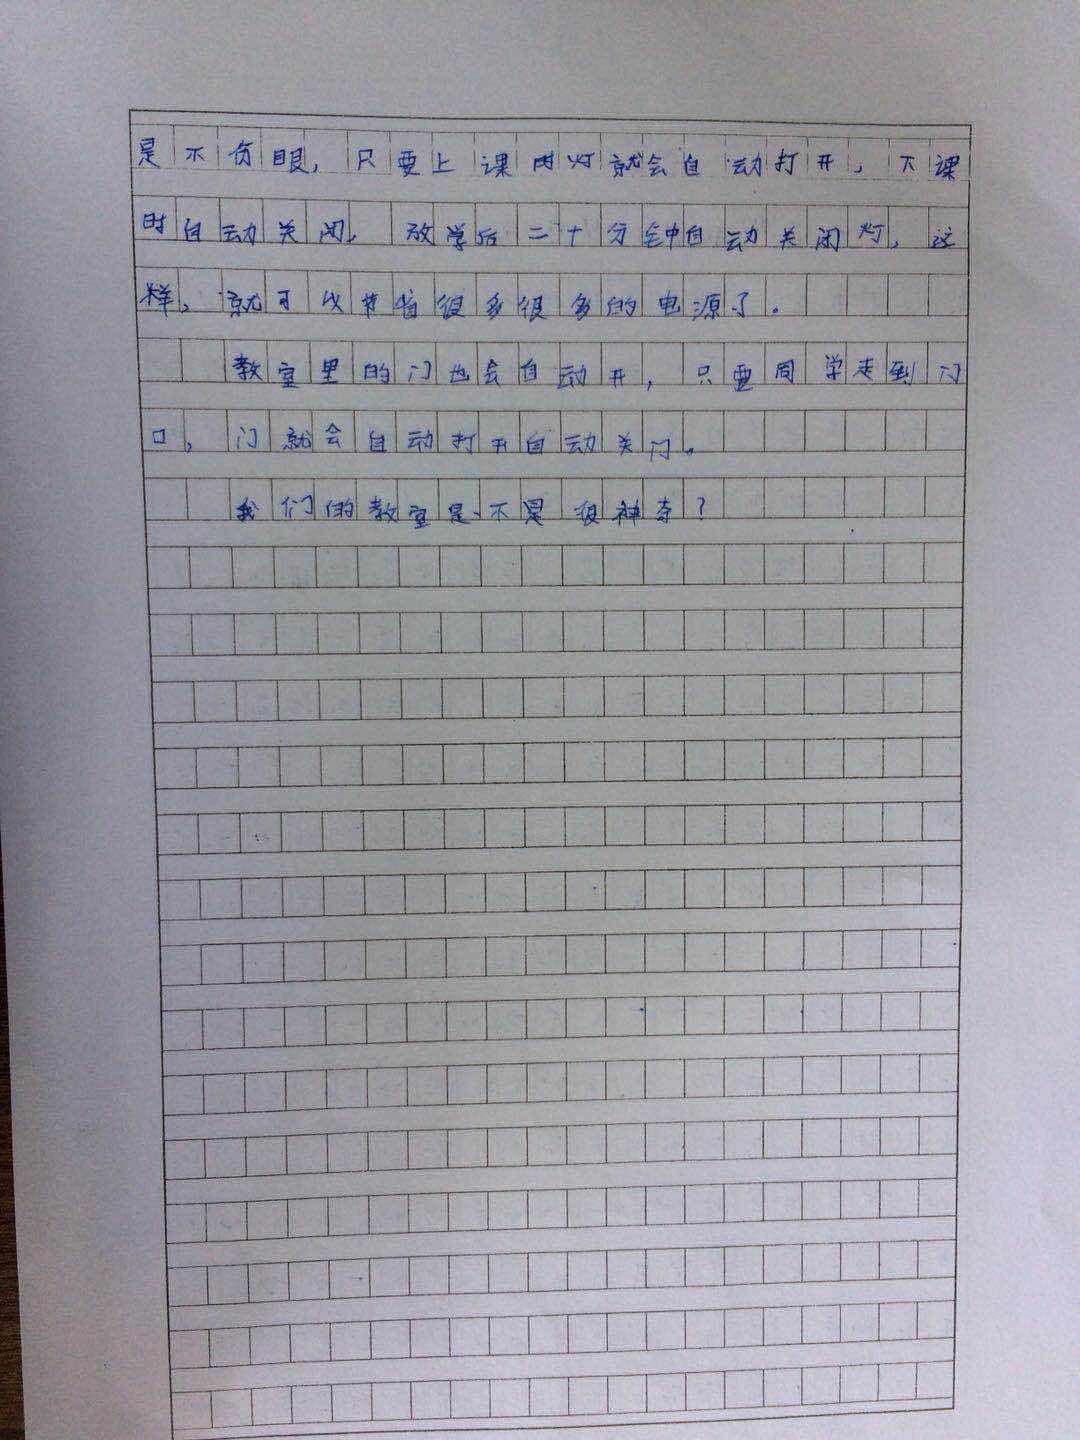 是不伤眼，只要上课时灯就会自动打开，下课
时自动关闭，放学后二十分钟自动关闭灯，这
样，就可以节省很多很多的电源了。
教室里的门也会自动开，只要同学走到门
口，门就会自动打开自动关门。
我们的教室是不是很神奇？